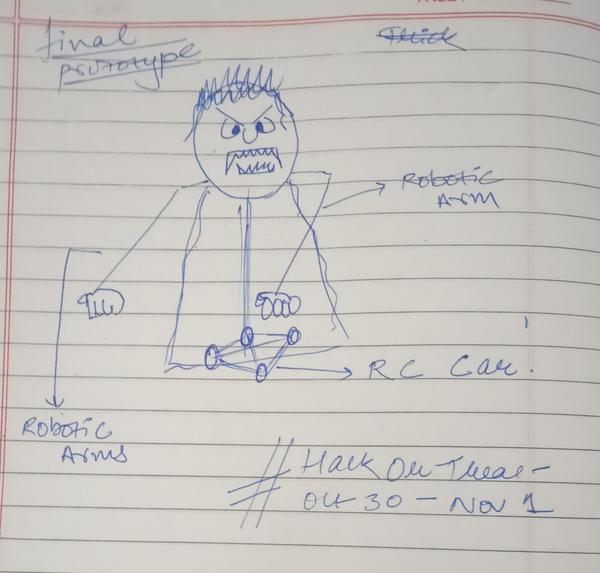 final
prototype
Robotic
Arm
RC Car.
Robotic
Arms
# Hack On Treat -
Oct 30 - Nov 1